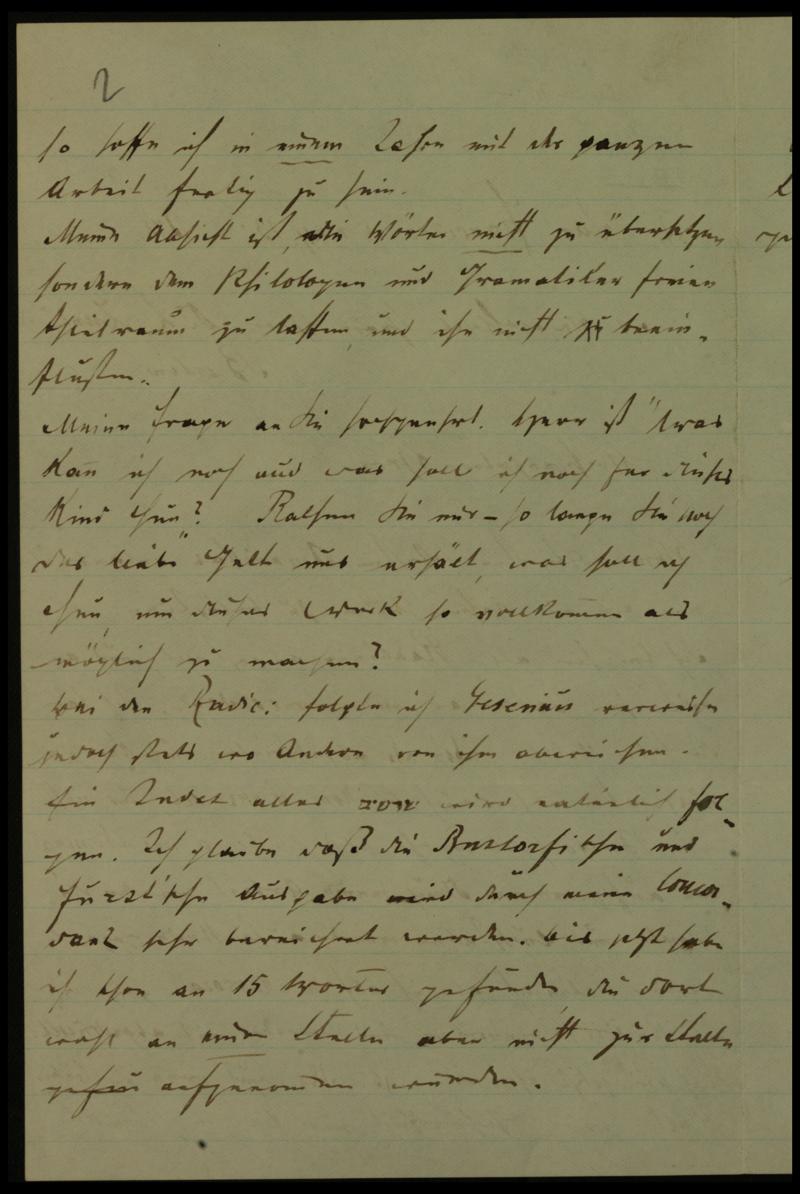 2
so hoffe ich in einem Jahre mit der ganzen
Arbeit fertig zu sein.
Meine Absicht ist, die Wörter nicht zu übersetzen
sondern dem Philologen und Gramatiker freien
Spielraum zu lassen, und ihn nicht zu beein-
flussen.
Meine Frage an Sie hochgeehrt. Herr ist "Was
kan ich noch und was soll ich noch für dieses
Kind thun?" Rathen Sie mir – so lange Sie noch
das liebe Gott uns erhält, was soll ich
thun, um dieses Werk so vollkomen als
möglich zu machen?
Bei den Radic: folgte ich Gesenius verweise
jedoch stets wo Andere von ihm abweichen.
Ein Index aller שרשים wird natürlich fol-
gen. Ich glaube daß die Buxtorfische und
Fürst'sche Ausgabe wird durch meine Concor-
danz sehr bereichert werden. Bis jetzt habe
ich schon an 15 Wörter gefunden die dort
wohl an einer Stelle aber nicht zur Stelle
aufgenommen wurden.